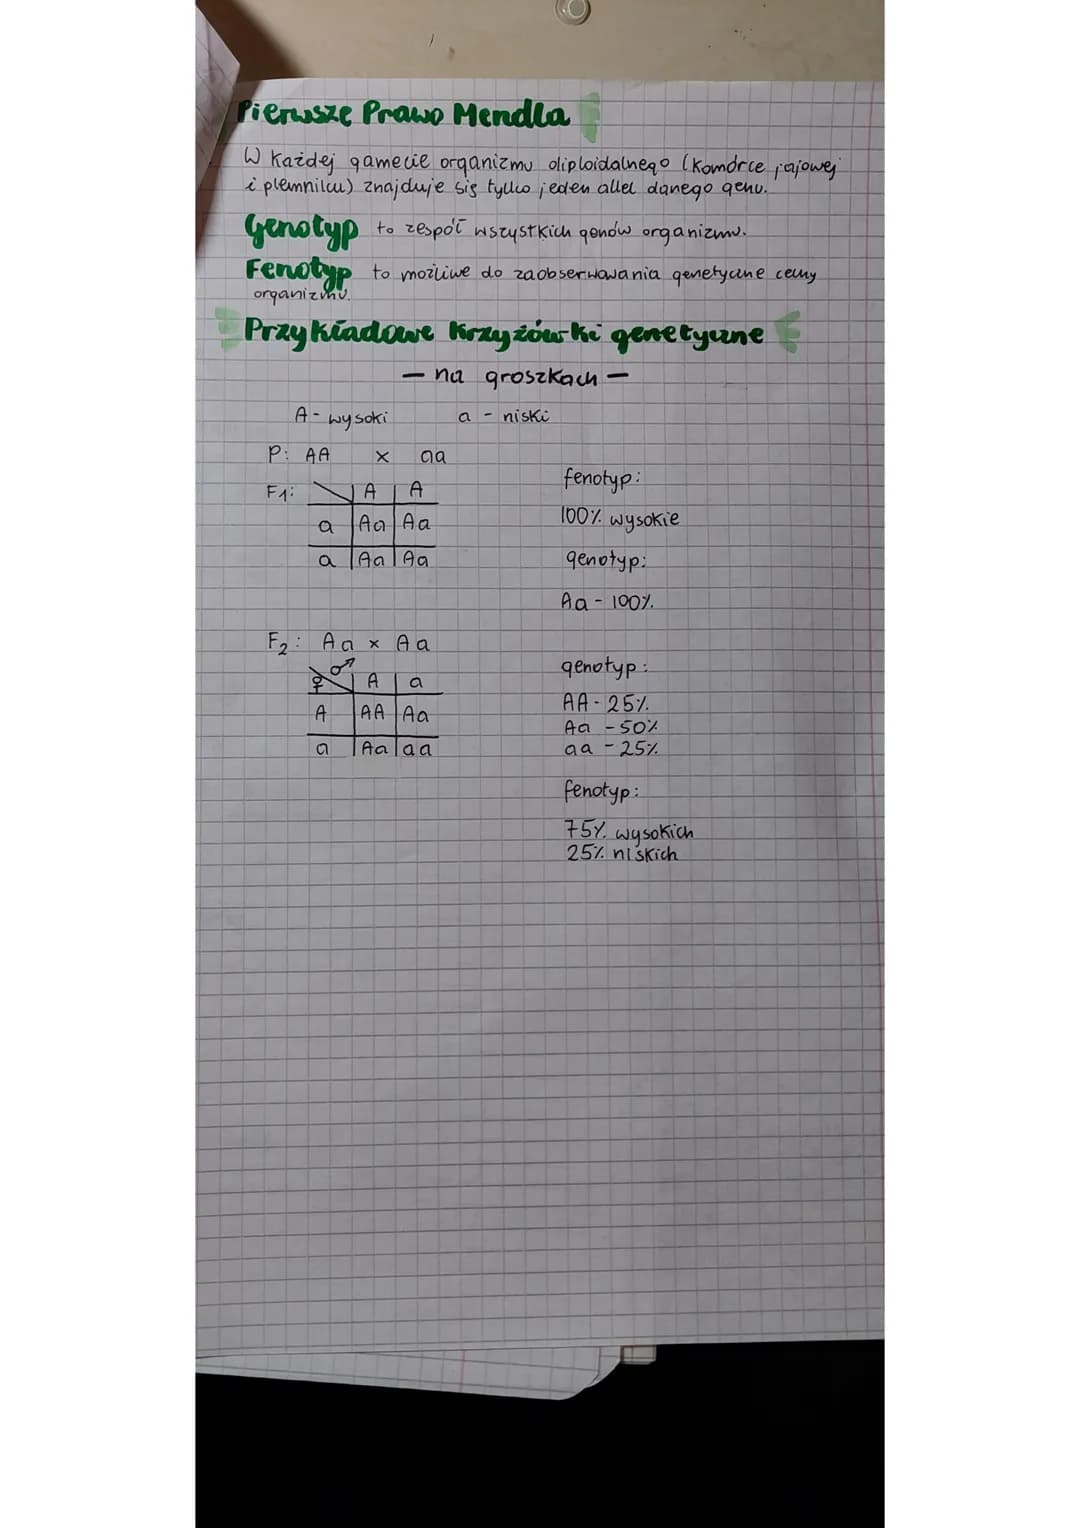 Pierwsze Prawo Mendla
W każdej gamecie organizmu oliploidalnego (komórce jajowej
i plemniku) znajduje się tylko jeden allel danego genu.
Genotyp to zespół wszystkich genów organizmu.
Fenotyp to możliwe do zaobserwowania genetyczne cechy
organizmu.
Przykładowe krzyżówki genetyczne
- na groszkach -
A - wysoki a - niski
P: AA x aa
fenotyp:
F1: A A
100% wysokie
a Aa Aa
genotyp:
a Aa Aa
Aa - 100%
F2: Aa x Aa
genotyp:
♀ ♂ A a
AA - 25%
A AA Aa
Aa - 50%
a Aa aa
aa - 25%
fenotyp:
75% wysokich
25% niskich